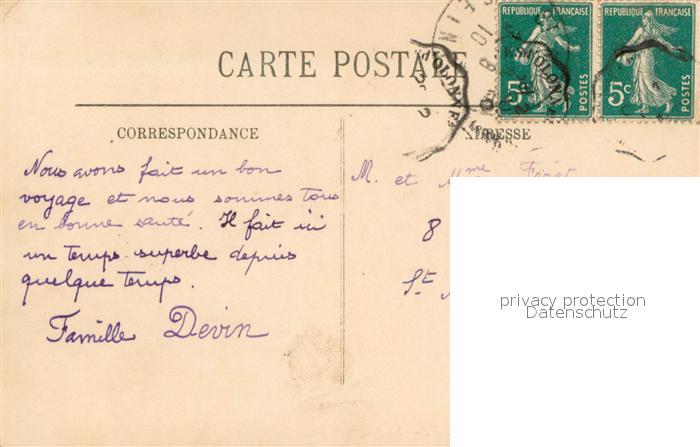 RÉPUBLIQUE FRANÇAISE RÉPUBLIQUE FRANÇAISE
5c POSTES 5c POSTES
CARTE POSTALE
CORRESPONDANCE
Nous avons fait un bon
voyage et nous sommes tous
en bonne santé. Il fait ici
un temps superbe depuis
quelque temps.
Famille Devin
M. et Mme
8
St
privacy protection
Datenschutz